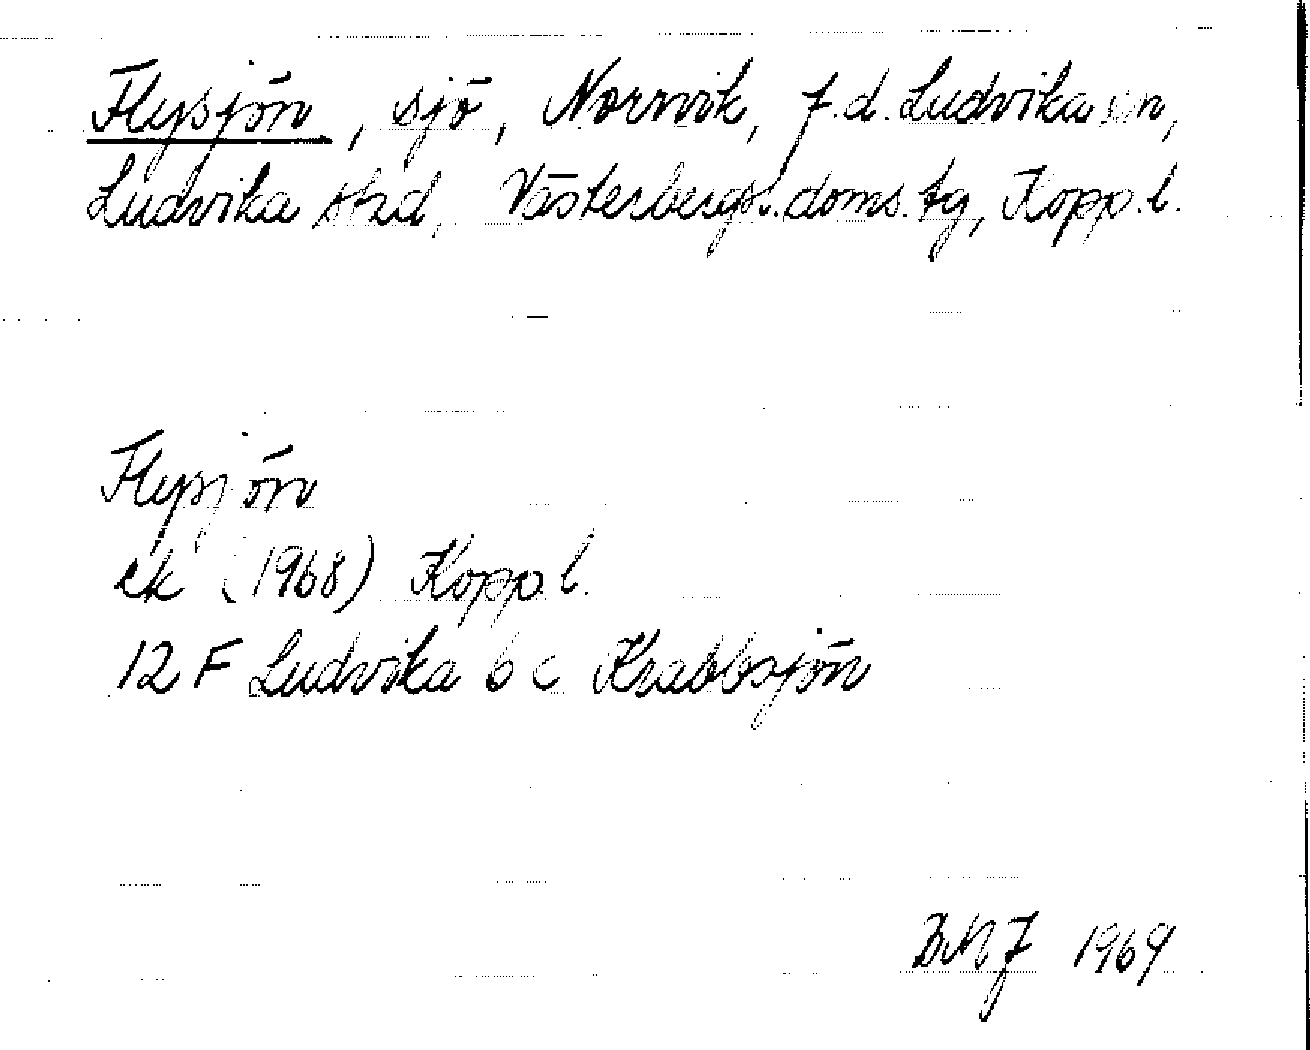 Flysjön, sjö, Norrvik, f.d. Ludvika sn,
Ludvika stad, Västerbergsl. doms. tg, Kopp. l.
Flysjön
ek (1968) Kopp l.
12 F Ludvika 6 c Krabbsjön
BMJ 1969